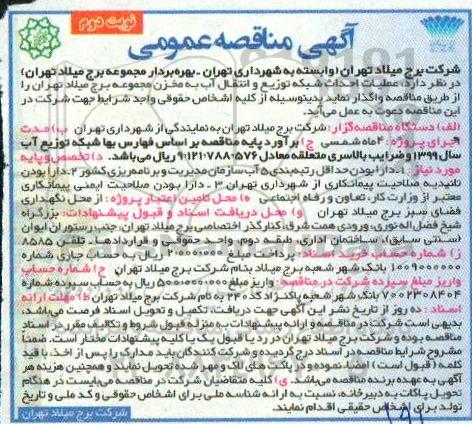 نوبت دوم
آگهی مناقصه عمومی
شرکت برج میلاد تهران (وابسته به شهرداری تهران - بهره‌بردار مجموعه برج میلاد تهران)
در نظر دارد: عملیات احداث شبکه توزیع و انتقال آب به مخزن مجموعه برج میلاد تهران را
از طریق مناقصه واگذار نماید بدینوسیله از کلیه اشخاص حقوقی واجد شرایط جهت شرکت در
این مناقصه دعوت به عمل می‌آید.
الف) دستگاه مناقصه‌گزار: شرکت برج میلاد تهران به نمایندگی از شهرداری تهران ب) مدت
اجرای پروژه: ۴ ماه شمسی ج) برآورد پایه مناقصه بر اساس فهارس بها شبکه توزیع آب
سال ۱۳۹۹ و ضرایب بالاسری متعلقه معادل ۹۰۱۲۱۰۷۸۸۰۵۷۶ ریال می‌باشد. د) تخصص و پایه
مورد نیاز: ۱ـ دارا بودن حداقل رتبه‌بندی ۵ آب سازمان مدیریت و برنامه‌ریزی کشور ۲ـ دارا بودن
تائیدیه صلاحیت پیمانکاری از شهرداری تهران ۳ـ دارا بودن صلاحیت ایمنی پیمانکاری
معتبر از وزارت کار، تعاون و رفاه اجتماعی ه) محل تامین اعتبار پروژه: از محل نگهداری
فضای سبز برج میلاد تهران و) محل دریافت اسناد و قبول پیشنهادات: بزرگراه
شیخ فضل‌اله نوری، ورودی همت شرق، کنارگذر اختصاصی برج میلاد تهران، جنب رستوران ایوان
(سنتی سابق)، ساختمان اداری، طبقه دوم، واحد حقوقی و قراردادها- تلفن ۸۵۸۵
ز) شماره حساب خرید اسناد: پرداخت مبلغ ریال به حساب جاری شماره
بانک شهر شعبه برج میلاد بنام شرکت برج میلاد تهران ح) شماره حساب
واریز مبلغ سپرده شرکت در مناقصه: واریز مبلغ ریال به حساب سپرده شماره
۷۰۰۲۳۰۸۴۰۴ بانک شهر شعبه پاکنژاد کد ۲۴۰ به نام شرکت برج میلاد تهران ط) مهلت ارائه
اسناد: ده روز از تاریخ نشر این آگهی جهت دریافت، تکمیل و تحویل اسناد فرصت می‌باشد
بدیهی است شرکت در مناقصه و ارائه پیشنهادات به منزله قبول شروط و تکالیف مقرر در اسناد
مناقصه بوده و شرکت برج میلاد تهران در رد یا قبول یک یا کلیه پیشنهادات مختار است. ضمنا
مشروح شرایط مناقصه در اسناد درج گردیده و شرکت کنندگان باید مدارک را پس از اخذ، با قید
کلمه (قبول است) امضا نموده و در پاکت های لاک و مهر شده تحویل نمایند و همچنین هزینه هر
آگهی به عهده برنده مناقصه می‌باشد. ی) کلیه متقاضیان شرکت در مناقصه می‌بایست در هنگام
تحویل پاکات به دبیرخانه، نسبت به ارائه شناسه ملی برای اشخاص حقوقی و کد ملی و تاریخ
تولد برای اشخاص حقیقی اقدام نمایند.
شرکت برج میلاد تهران